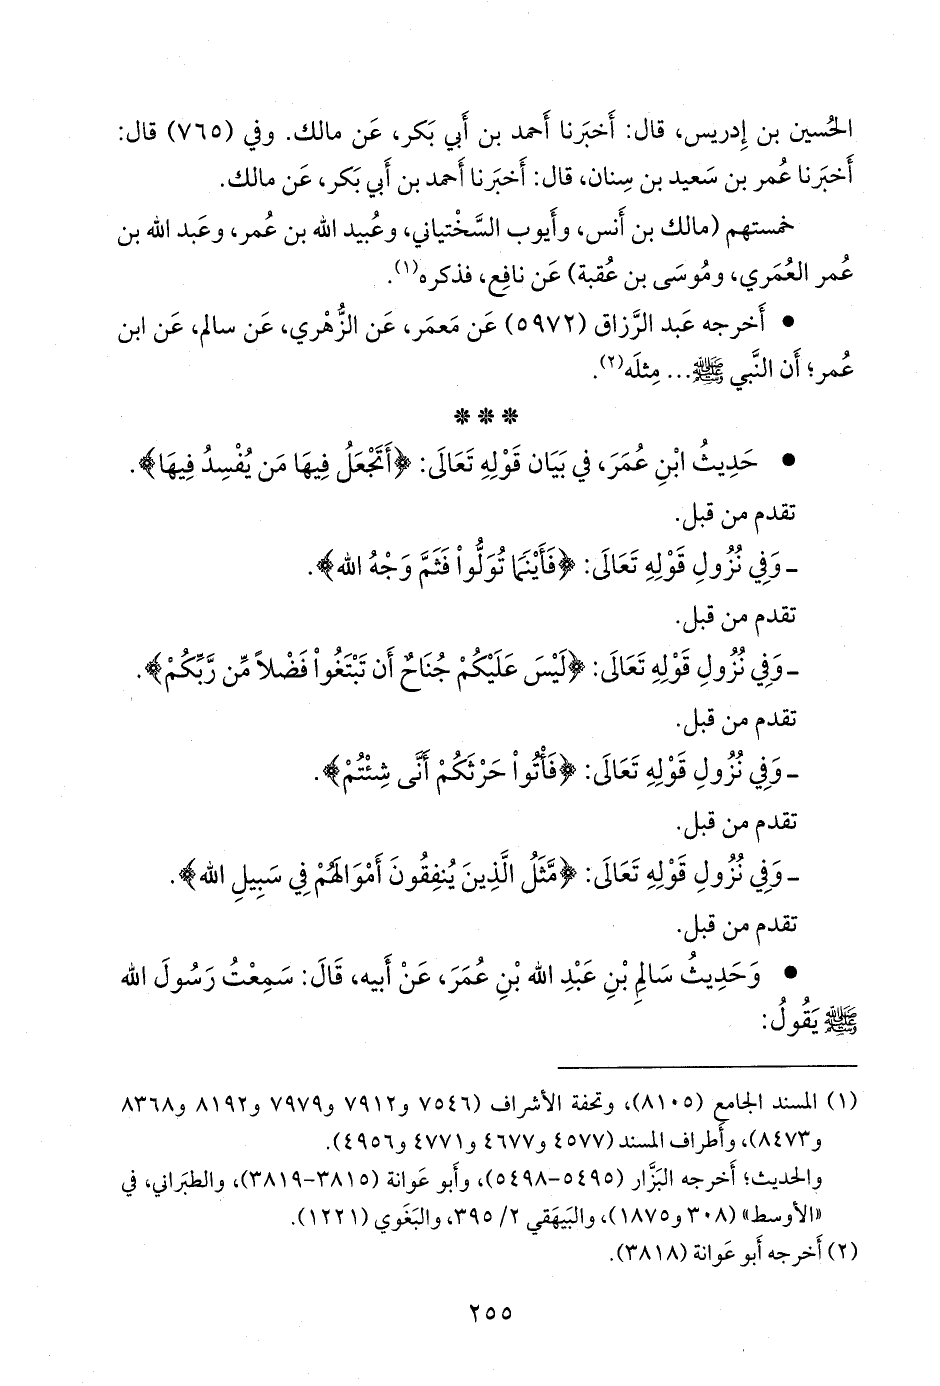 الحُسين بن إدريس، قال: أَخبَرنا أَحمد بن أَبي بَكر، عَن مالك. وفي (٧٦٥) قال:
أَخبَرنا عُمر بن سَعيد بن سِنان، قال: أَخبَرنا أَحمد بن أَبي بَكر، عَن مالك.
خمستهم (مالك بن أَنس، وأَيوب السَّخْتياني، وعُبيد الله بن عُمر، وعَبد الله بن
عُمر العُمَري، ومُوسَى بن عُقبة) عَن نافِع، فذكره(١).
• أَخرجه عَبد الرَّزاق (٥٩٧٢) عَن مَعمَر، عَن الزُّهْري، عَن سالم، عَن ابن
عُمر؛ أَن النَّبي ﷺ... مِثلَه(٢).
* * *
• حَدِيثُ ابْنِ عُمَرَ، في بَيَان قَوْلِهِ تَعَالَى: ﴿أَتَجْعَلُ فِيهَا مَن يُفْسِدُ فِيهَا﴾.
تقدم من قبل.
ـ وَفِي نُزُولِ قَوْلِهِ تَعَالَى: ﴿فَأَيْنَمَا تُوَلُّواْ فَثَمَّ وَجْهُ الله﴾.
تقدم من قبل.
ـ وَفِي نُزُولِ قَوْلِهِ تَعَالَى: ﴿لَيْسَ عَلَيْكُمْ جُنَاحٌ أَن تَبْتَغُواْ فَضْلاً مِّن رَّبِّكُمْ﴾.
تقدم من قبل.
ـ وَفِي نُزُولِ قَوْلِهِ تَعَالَى: ﴿فَأْتُواْ حَرْثَكُمْ أَنَّى شِئْتُمْ﴾.
تقدم من قبل.
ـ وَفِي نُزُولِ قَوْلِهِ تَعَالَى: ﴿مَّثَلُ الَّذِينَ يُنفِقُونَ أَمْوَالَهُمْ فِي سَبِيلِ الله﴾.
تقدم من قبل.
• وَحَدِيثُ سَالِمِ بْنِ عَبْدِ الله بْنِ عُمَرَ، عَنْ أَبيه، قَالَ: سَمِعْتُ رَسُولَ الله
ﷺ يَقُولُ:
(١) المسند الجامع (٨١٠٥)، وتحفة الأشراف (٧٥٤٦ و٧٩١٢ و٧٩٧٩ و٨١٩٢ و٨٣٦٨
و٨٤٧٣)، وأَطراف المسند (٤٥٧٧ و٤٦٧٧ و٤٧٧١ و٤٩٥٦).
والحديث؛ أَخرجه البَزَّار (٥٤٩٥-٥٤٩٨)، وأَبو عَوانة (٣٨١٥-٣٨١٩)، والطبَراني، في
«الأَوسط» (٣٠٨ و١٨٧٥)، والبَيهَقي ٢/ ٣٩٥، والبَغَوي (١٢٢١).
(٢) أَخرجه أَبو عَوانة (٣٨١٨).
٢٥٥